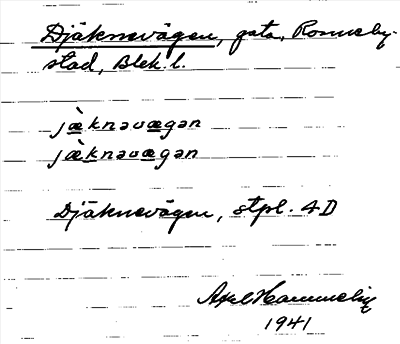 Djäknevägen, gata, Ronneby
stad, Blek. l.
jæ̀knəvægən
jæ̀knəvægən
Djäknevägen, stpl. 4D
Axel Hammelig
1941